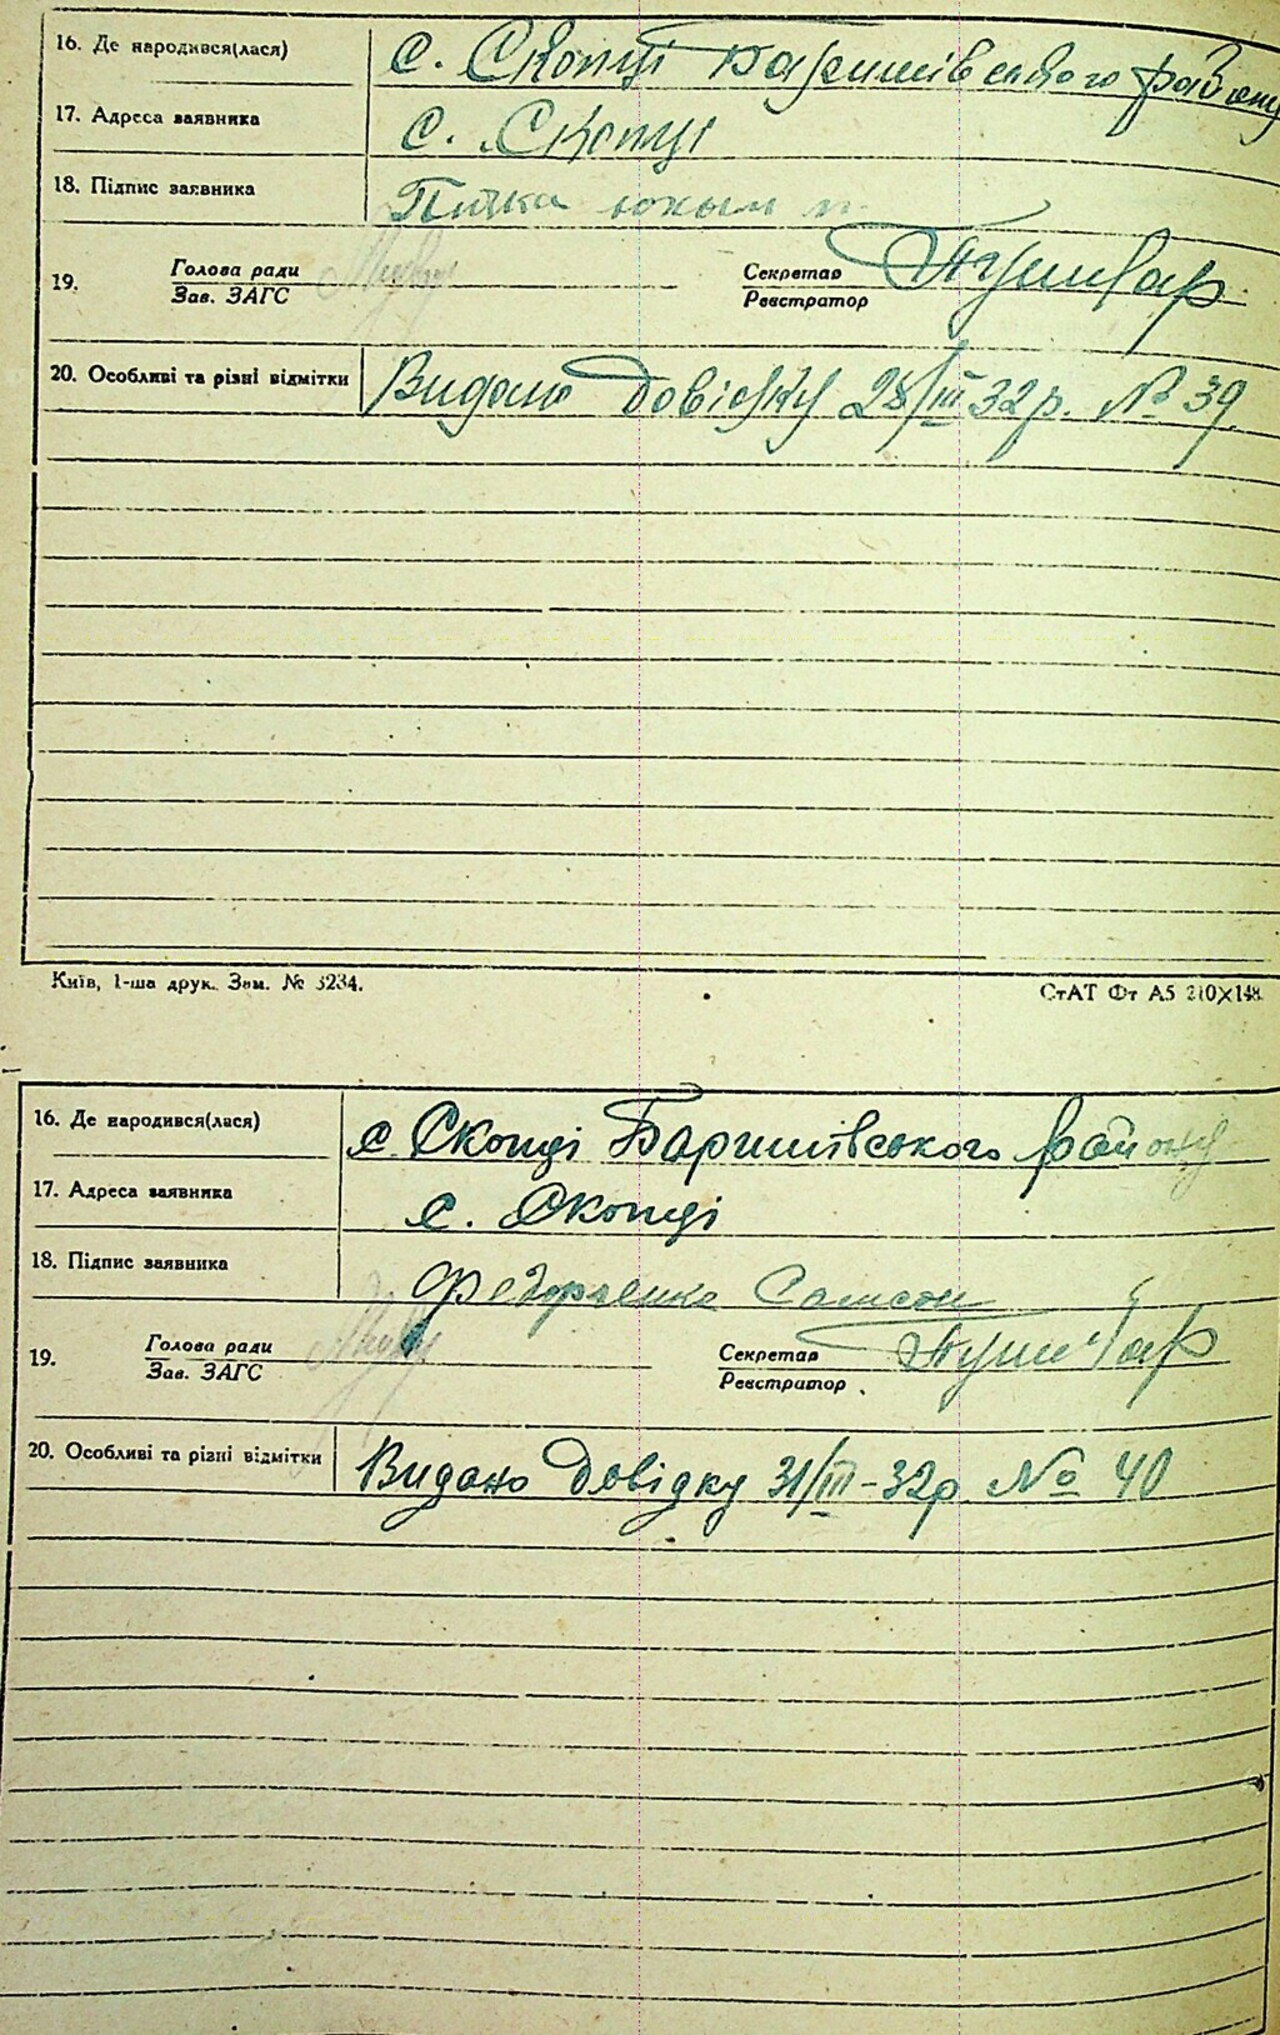 16. Де народився(лася) с. Скопці Баришівського району
17. Адреса заявника с. Скопці
18. Підпис заявника
19. Голова ради Секретар Пушкар
Зав. ЗАГС Реєстратор
20. Особливі та різні відмітки Видано довідку 28/III 32р. № 39
Київ, 1-ша друк. Зам. № 3234. СтАТ Фт А5 210×148
16. Де народився(лася) с Скопці Баришівського району
17. Адреса заявника с. Скопці
18. Підпис заявника Федорченко Самсон
19. Голова ради Секретар Пушкар
Зав. ЗАГС Реєстратор
20. Особливі та різні відмітки Видано довідку 31/III-32р. № 40